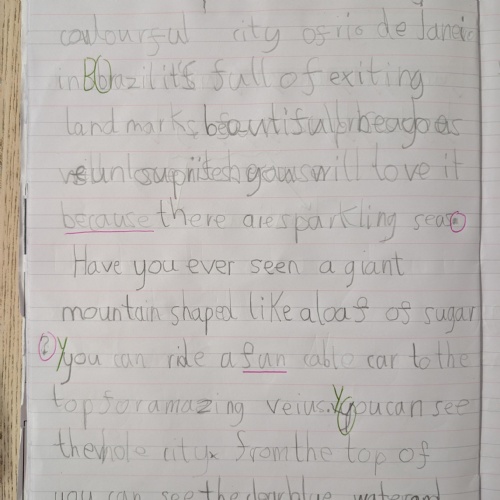 coulourful city of rio de Janeir
in Brazil it's full of exiting
landmarks beautiful
you will love it
because there are sparkling seas.
Have you ever seen a giant
mountain shaped like a loaf of sugar
? You can ride a fun cable car to the
top for amazing veius. You can see
the whole city. from the top of
you can see the clear blue water and